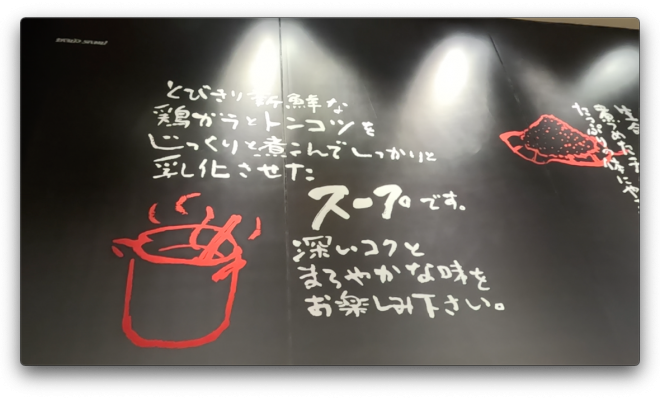 とびきり新鮮な
鶏ガラとトンコツを
じっくりと煮こんでしっかりと
乳化させた
スープです。
深いコクと
まろやかな味を
お楽しみ下さい。
煮つめた
たっぷりの